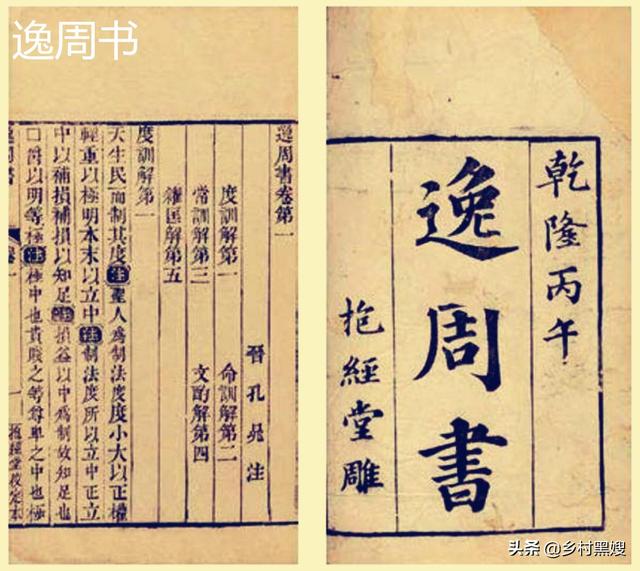 逸周书
乾隆丙午
逸周書
抱經堂雕
逸周書卷第一
晉孔晁注
度訓解第一 命訓解第二
常訓解第三 文酌解第四
糴匡解第五
度訓解第一
天生民而制其度注聖人爲制法度度小大以正權
輕重以極明本末以立中注制法度所以立中正立
中以補損補損以知足注損益以中爲制故知足也
□爵以明等極注極中也貴賤之等尊卑之中也極
逸周書 卷一 一 抱經堂校定本
头条 @乡村黑嫂